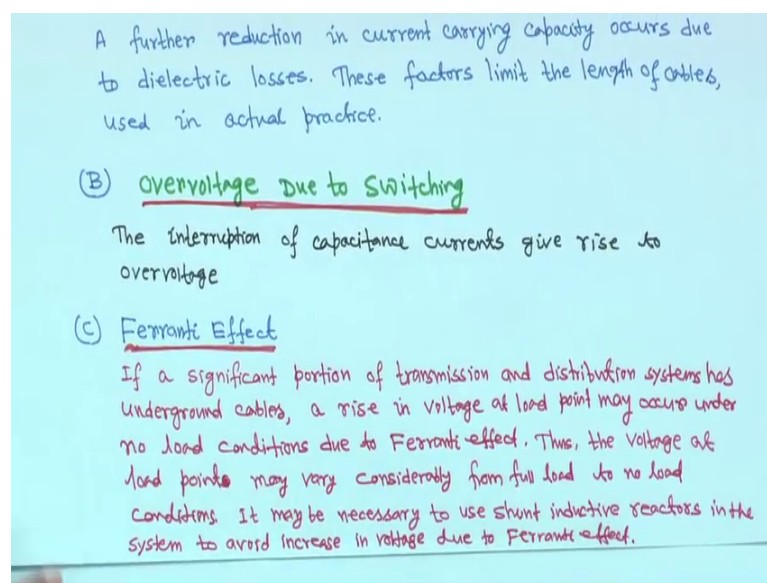 A further reduction in current carrying capacity occurs due
to dielectric losses. These factors limit the length of cables,
used in actual practice.
(B) Overvoltage Due to Switching
The interruption of capacitance currents give rise to
overvoltage
(C) Ferranti Effect
If a significant portion of transmission and distribution systems has
underground cables, a rise in voltage at load point may occur under
no load conditions due to Ferranti effect. Thus, the voltage at
load points may vary considerably from full load to no load
conditions. It may be necessary to use shunt inductive reactors in the
system to avoid increase in voltage due to Ferranti effect.